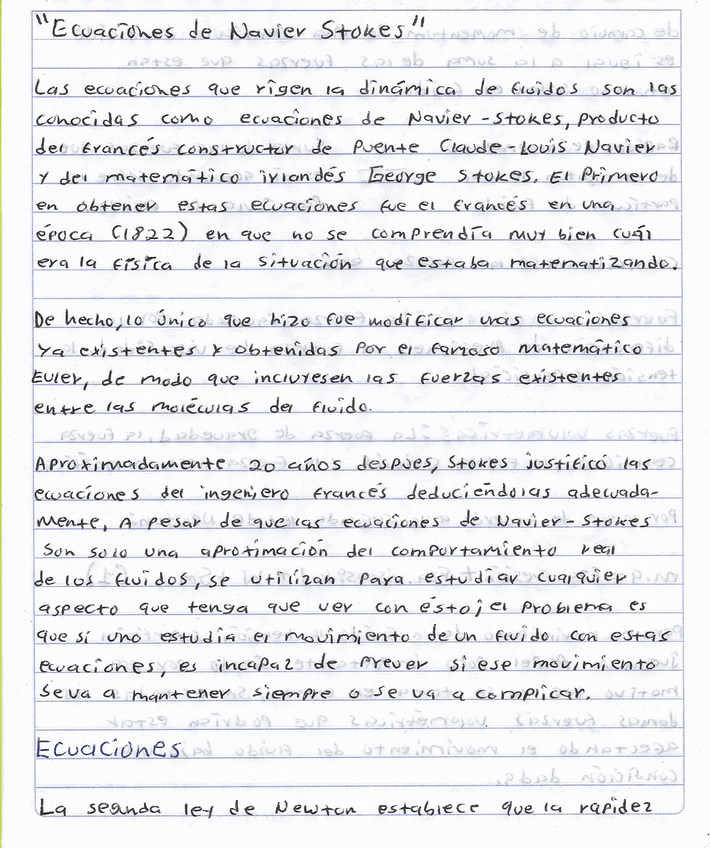 "Ecuaciones de Navier Stokes"
Las ecuaciones que rigen la dinámica de fluidos son las
conocidas como ecuaciones de Navier-Stokes, producto
del francés constructor de Puente Claude-Louis Navier
y del matemático irlandés George Stokes. El Primero
en obtener estas ecuaciones fue el francés en una
época (1822) en que no se comprendía muy bien cuál
era la física de la situación que estaba matematizando.
De hecho, lo único que hizo fue modificar unas ecuaciones
ya existentes y obtenidas por el famoso matemático
Euler, de modo que incluyesen las fuerzas existentes
entre las moléculas del fluido.
Aproximadamente 20 años despues, Stokes justificó las
ecuaciones del ingeniero francés deduciéndolas adecuada-
mente, A pesar de que las ecuaciones de Navier-Stokes
son solo una aproximación del comportamiento real
de los fluidos, se utilizan para estudiar cualquier
aspecto que tenga que ver con ésto; el problema es
que si uno estudia el movimiento de un fluido con estas
ecuaciones, es incapaz de prever si ese movimiento
se va a mantener siempre o se va a complicar.
Ecuaciones
La segunda ley de Newton establece que la rapidez